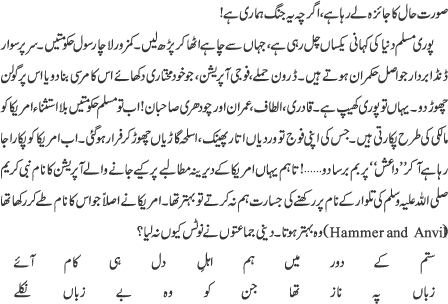 صورت حال کا جائزہ لے رہا ہے، اگرچہ یہ جنگ ہماری ہے!
پوری مسلم دنیا کی کہانی یکساں چل رہی ہے، جہاں سے چاہے اٹھا کر پڑھ لیں۔ کمزور لاچار سول حکومتیں۔ سر پر سوار
ڈنڈا بردار جو اصل حکمران ہوتے ہیں۔ ڈرون حملے، فوجی آپریشن، جو خود مختاری دکھائے اس کا مرسی بنا دو یا اس پر گولن
چھوڑ دو۔ یہاں تو پوری کھیپ ہے۔ قادری، الطاف، عمران اور چودھری صاحبان! اب تو مسلم حکومتیں بلا استثناء امریکا کو
مائکی کی طرح پکارتی ہیں۔ جس کی اپنی فوج تو وردیاں اتار پھینک، اسلحہ گاڑیاں چھوڑ کر فرار ہو گئی۔ اب امریکا کو پکارا جا
رہا ہے آ کر ’’داعش‘‘ پر بم برسا دو......! تاہم یہاں امریکا کے دیرینہ مطالبے پر کیے جانے والے آپریشن کا نام نبی کریم
صلی اللہ علیہ وسلم کی تلوار کے نام پر رکھنے کی جسارت ہم نہ کرتے تو بہتر تھا۔ امریکا نے اصلاً جو اس کا نام طے کر رکھا تھا
(Hammer and Anvi) وہ بہتر ہوتا۔ دینی جماعتوں نے نوٹس کیوں نہ لیا؟
ستم کے دور میں ہم اہل دل ہی کام آئے
زباں پہ ناز تھا جن کو وہ بے زباں نکلے